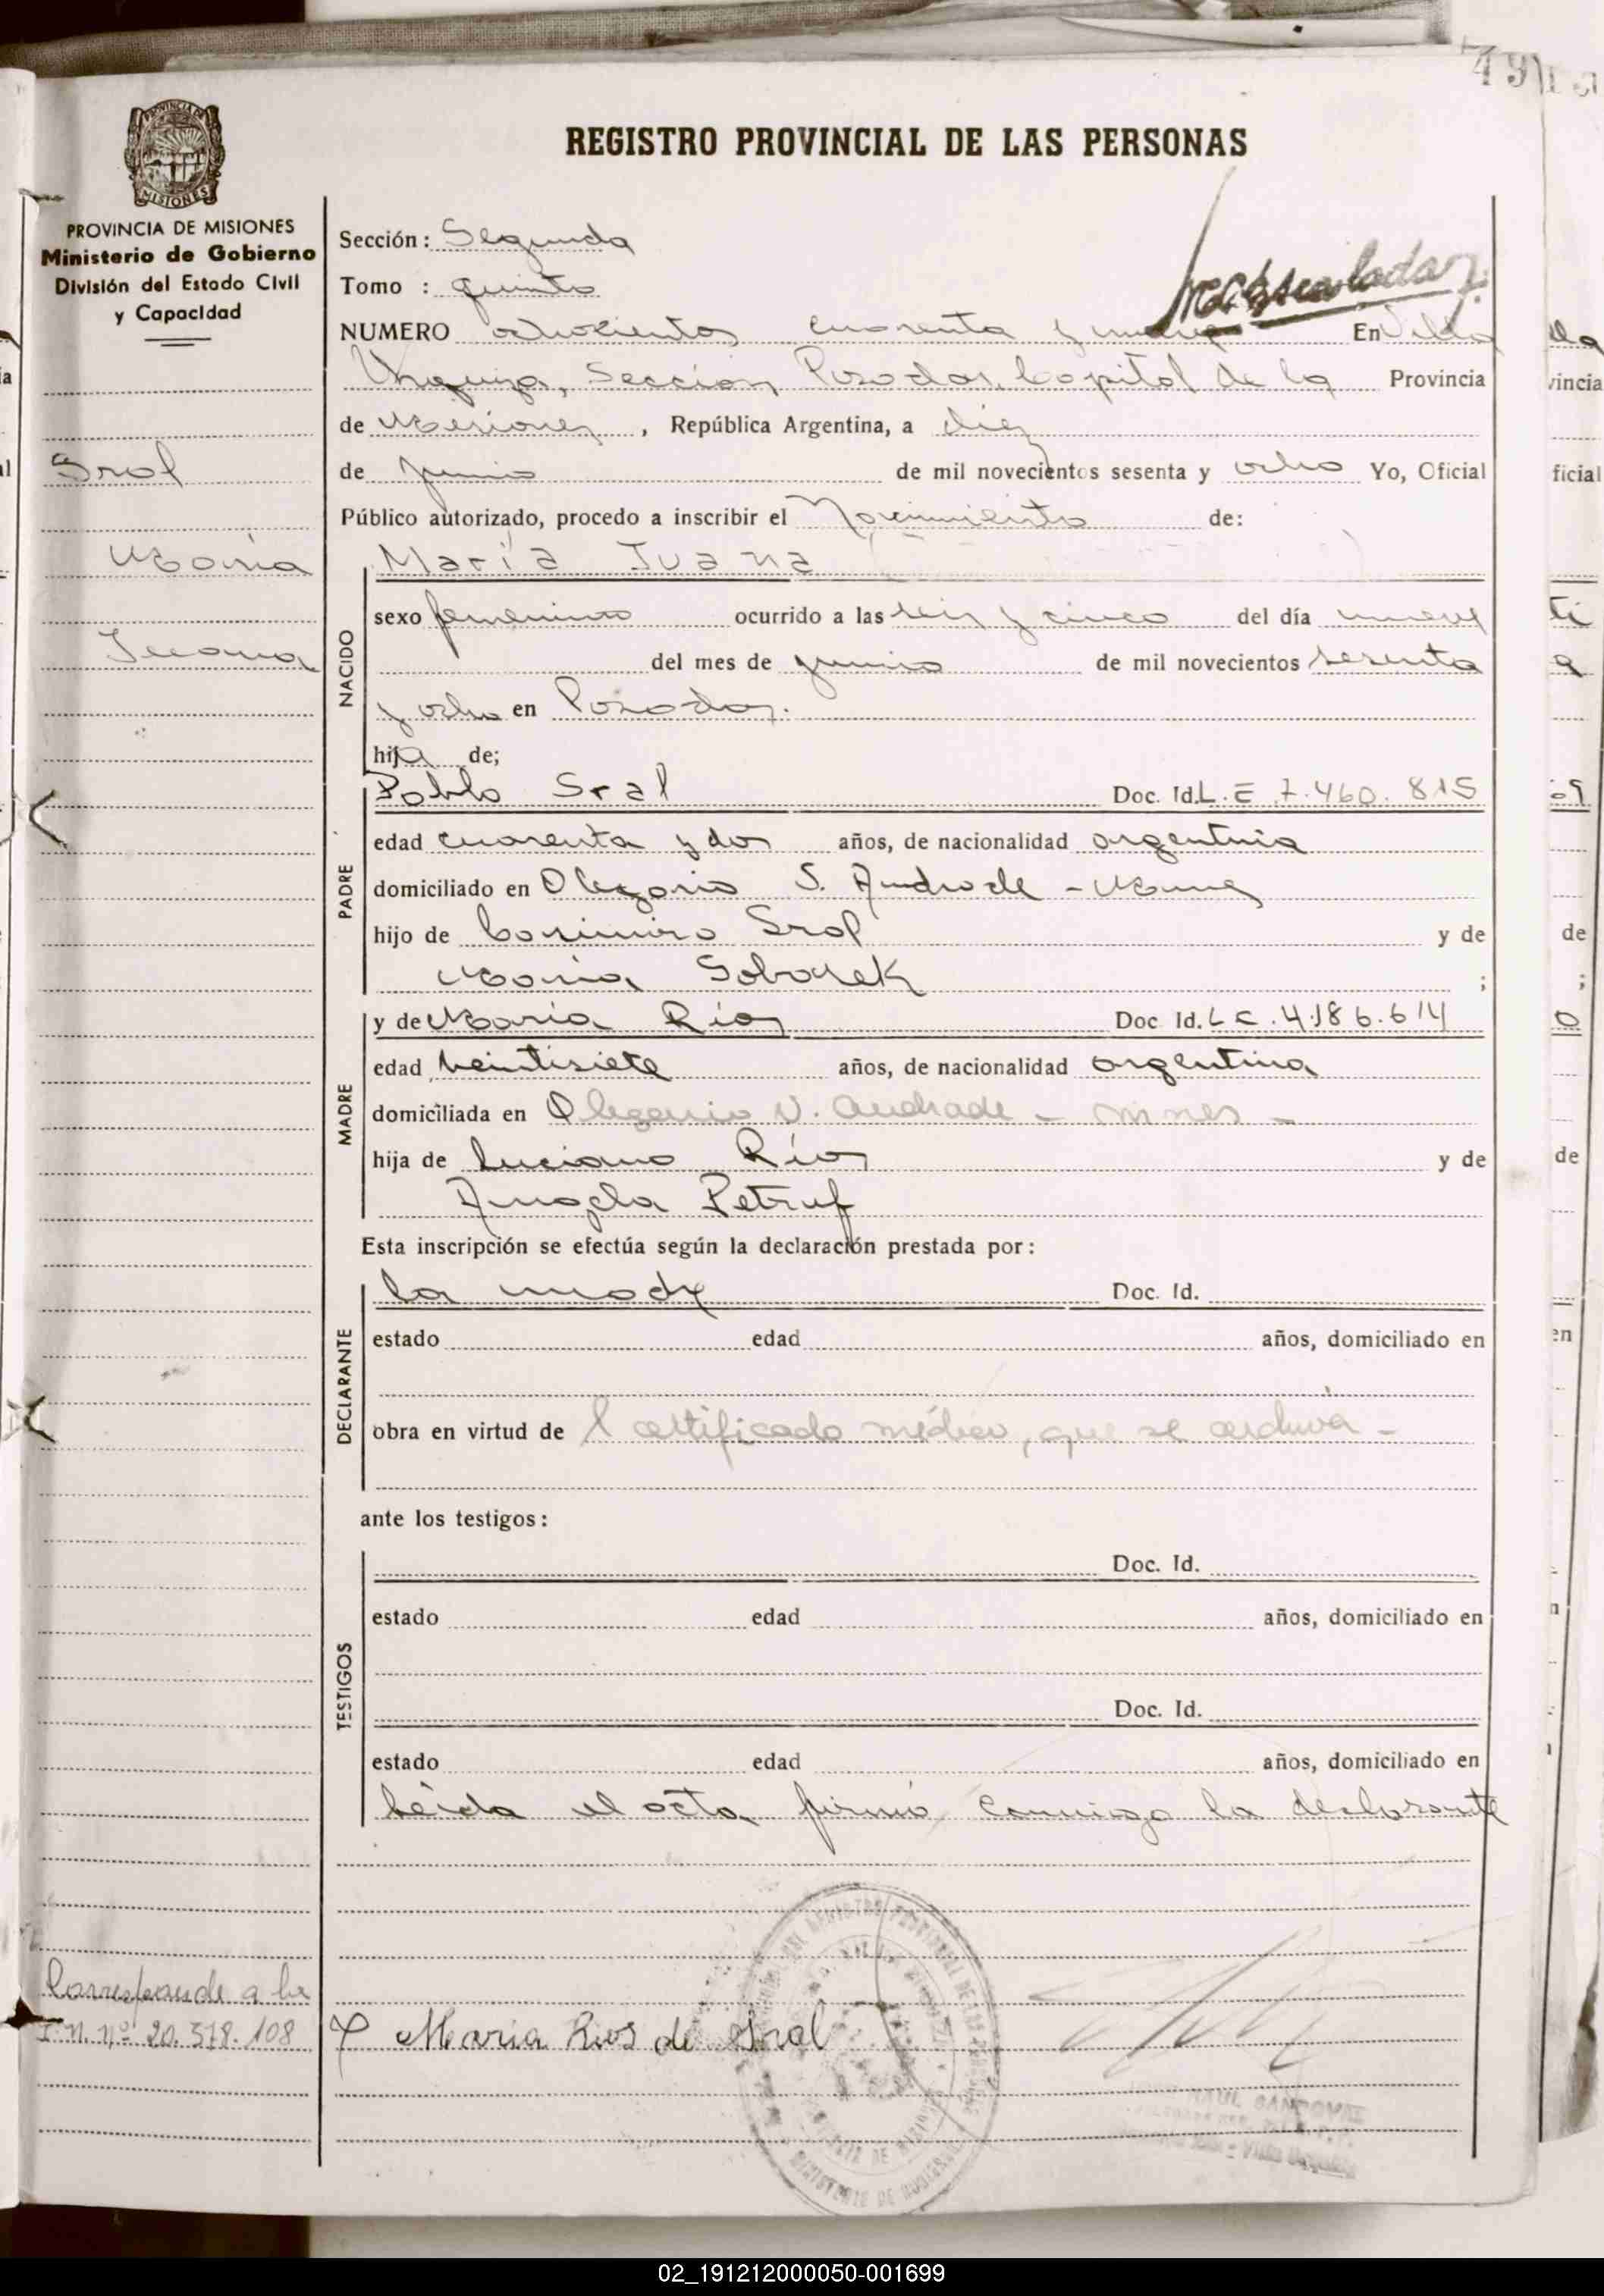 49
REGISTRO PROVINCIAL DE LAS PERSONAS
PROVINCIA DE MISIONES
Ministerio de Gobierno
División del Estado Civil
y Capacidad
Sral
María
Juana
Sección: Segunda
Tomo : quinto
NUMERO ochocientos cuarenta y nueve En Villa
Urquiza, Sección Posadas, Capital de la Provincia
de Misiones, República Argentina, a diez
de junio de mil novecientos sesenta y ocho Yo, Oficial
Público autorizado, procedo a inscribir el Nacimiento de:
María Juana
NACIDO
sexo femenino ocurrido a las seis y cinco del día nueve
del mes de junio de mil novecientos sesenta
y ocho en Posadas.
hija de;
Pablo Sral Doc. Id. L.E 7.460.815
PADRE
edad cuarenta y dos años, de nacionalidad argentina
domiciliado en Olegario S. Andrade - Msnes
hijo de Casimiro Sral y de
María ;
y de María Ríos Doc Id. L C. 4.186.614
MADRE
edad veintisiete años, de nacionalidad argentina
domiciliada en Olegario V. Andrade - Mnes -
hija de Luciano Ríos y de
Petruf
Esta inscripción se efectúa según la declaración prestada por:
la madre Doc. Id.
DECLARANTE
estado edad años, domiciliado en
obra en virtud de l certificado médico, que se archiva -
ante los testigos:
Doc. Id.
TESTIGOS
estado edad años, domiciliado en
Doc. Id.
estado edad años, domiciliado en
Leída el acta firmó conmigo la declarante
Corresponde a la
I.N. nº 20.378.108
María Rios de Sral
02_191212000050-001699